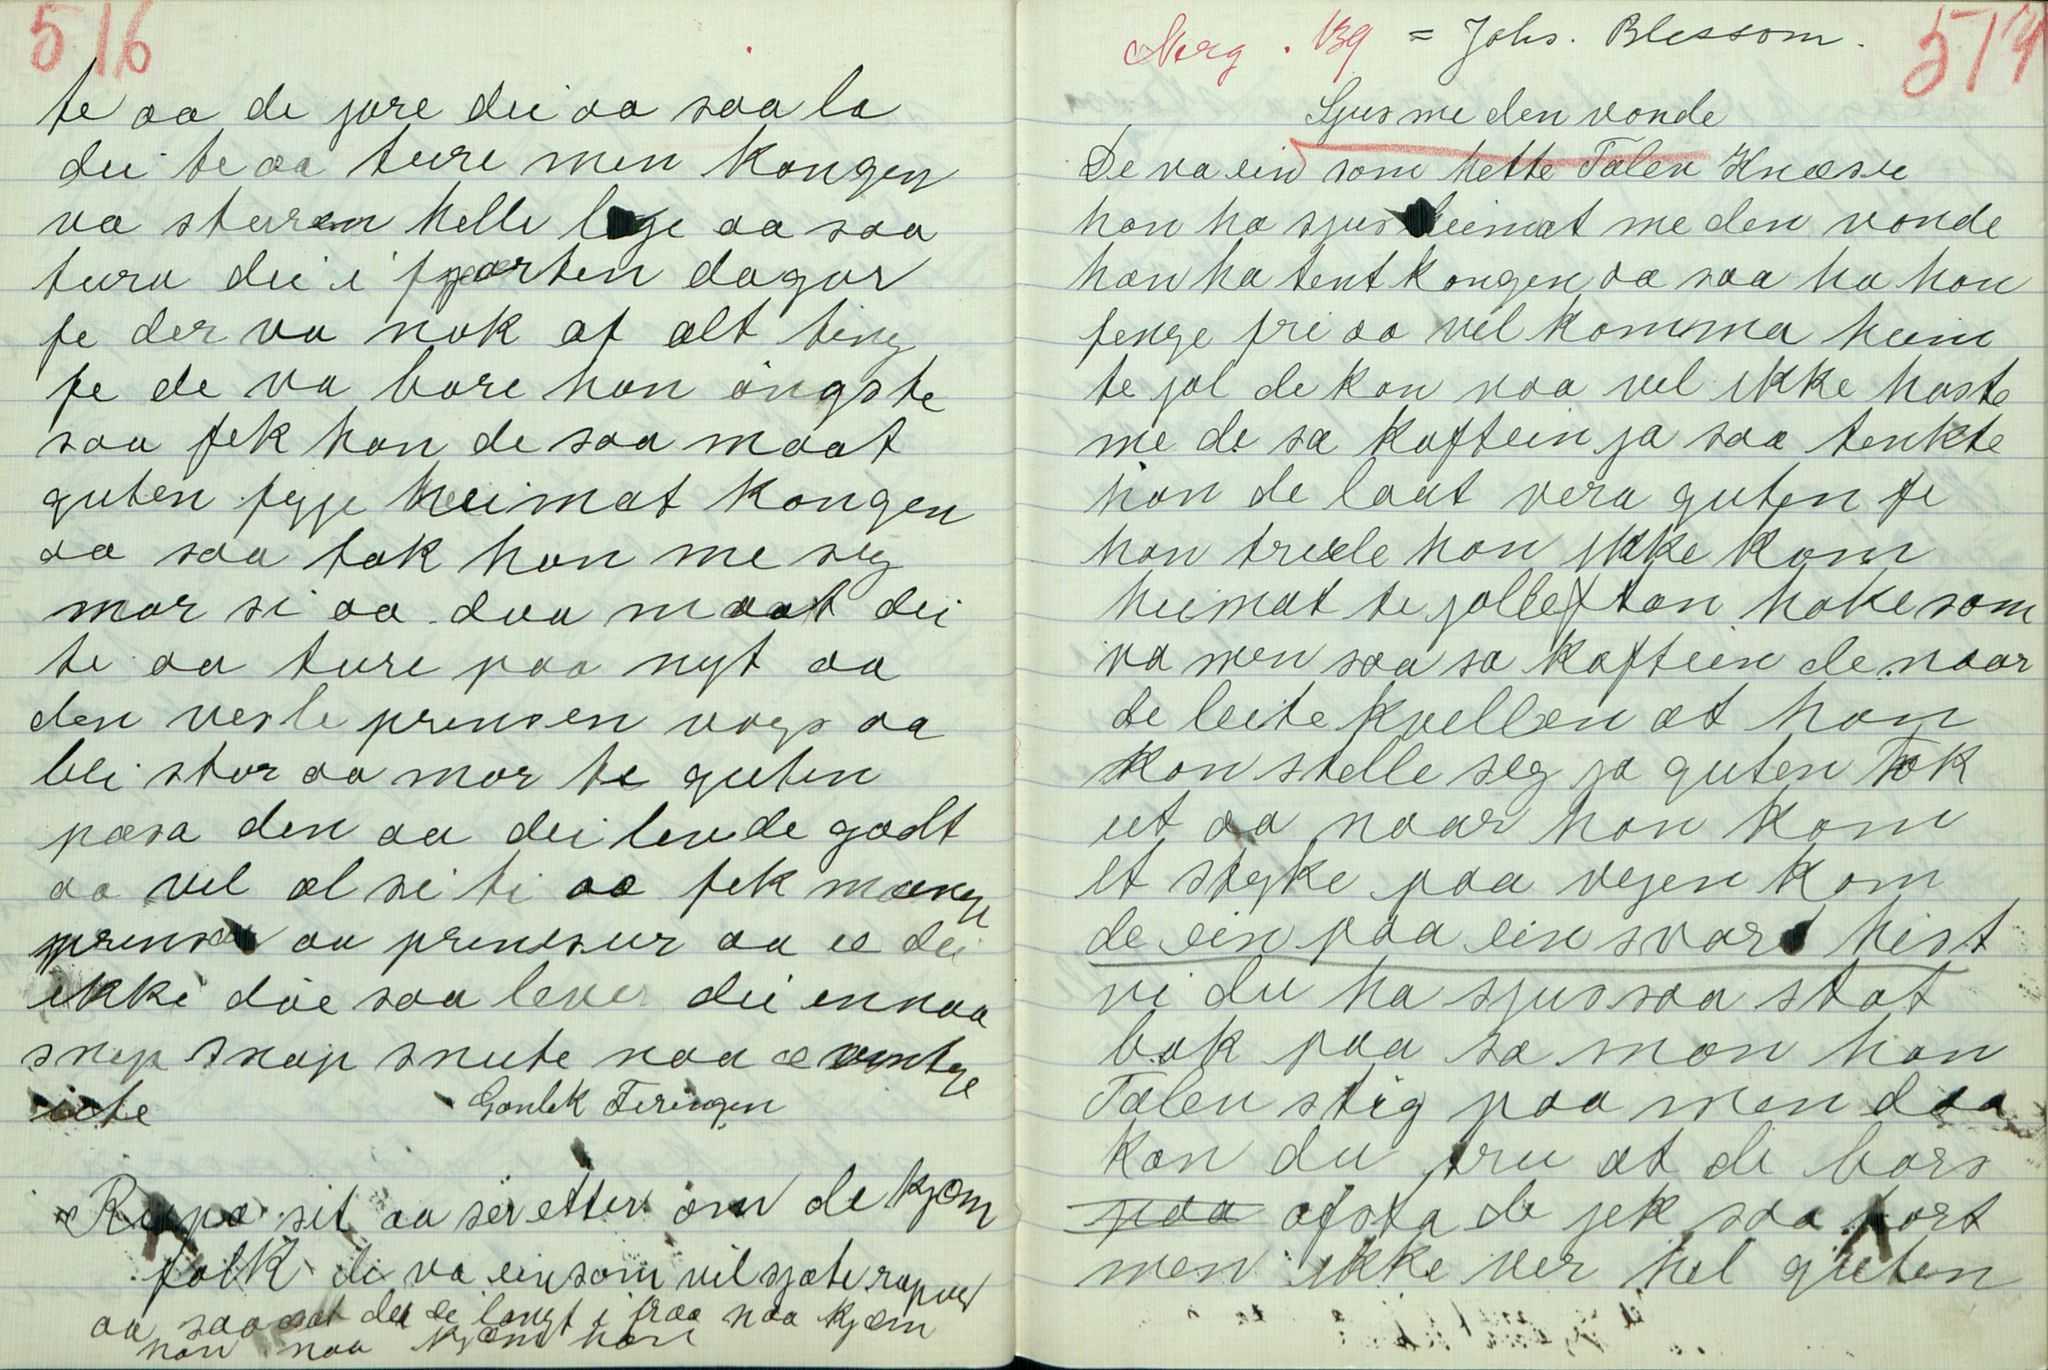 516
te aa de jore dei aa saa la
dei te aa ture men kongen
va sturen helle lege aa saa
tura dei i fjorten dagar
fe der va nok af alt ting
fe de va bare han ångste
saa fek han de saa maat
guten fygje heimat kongen
aa saa tok han me seg
mor si aa daa maat dei
te aa ture paa nyt aa
den vesle prinsen vogs aa
blei stor aa mor te guten
passa den aa dei levde godt
aa vel al si ti aa fek mange
prinsar aa prinsesur aa æ dei
ikke döe saa lever dei ennaa
snip snap snute naa æ ventye
ute
Gonlek Feringen
Rupa sit aa ser etter om de kjæm
folk de va ein som vil sjote rupur
aa saa sat dei de langt i fraa naa kjæm
han naa kjæm han
517
Norg. 139 = Johs. Blessom.
Sjus me den vonde
De va ein som hette Talen Knæsie
han ha sjus heimat me den vonde
han ha tent kongen aa saa ha han
fenge fri aa vel komma heim
te jol de kan naa vel ikke haste
me de sa kaftein ja saa tenkte
han de laat vera guten fe
han trude han ikke kom
heimat te jolleftan hokesom
va men saa sa kaftein de naar
de leite kvellen at han
kan stelle seg ja guten Tok
ut aa naar han kom
et styke paa vegen kom
de ein paa ein svart hest
vi du ha sjus saa stat
bak paa sa man han
Talen stig paa men daa
kan du tru at de bars
paa afsta de jek saa fort
men ikke ver hel guten